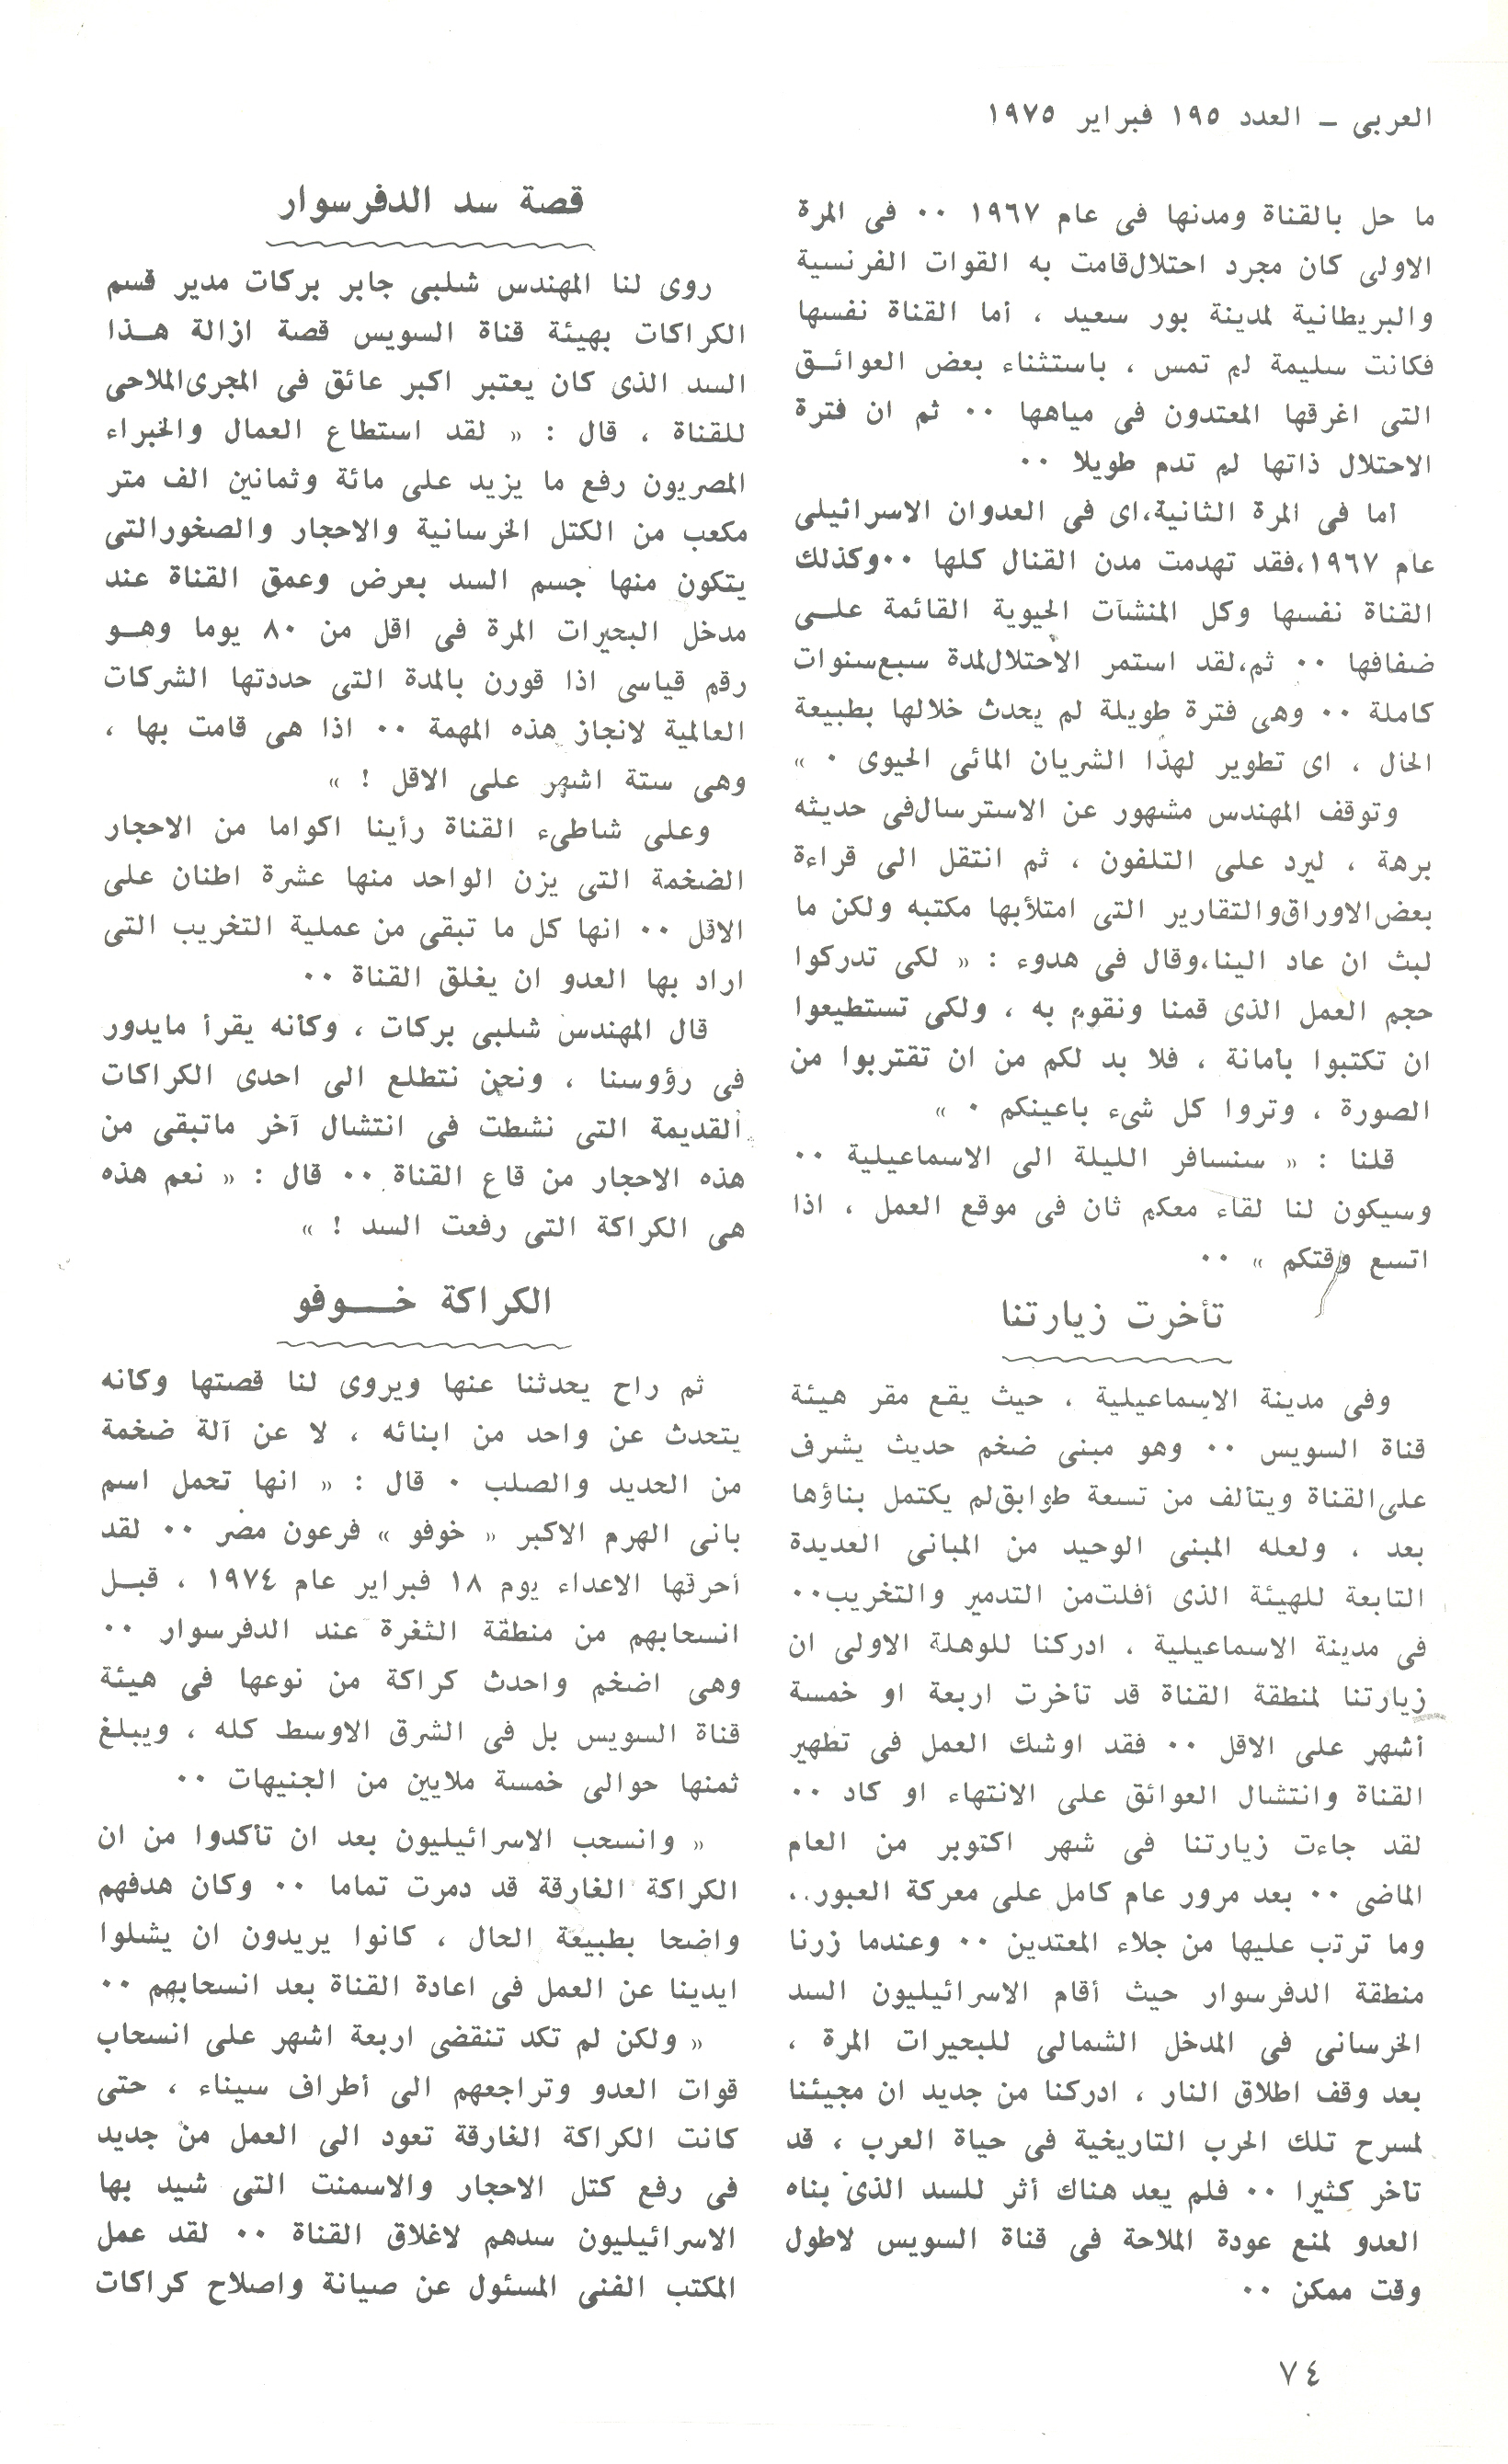 العربى ــ العدد ١٩٥ فبراير ١٩٧٥
ما حل بالقناة ومدنها فى عام ١٩٦٧ ٠٠ فى المرة
الاولى كان مجرد احتلال قامت به القوات الفرنسية
والبريطانية لمدينة بور سعيد ، أما القناة نفسها
فكانت سليمة لم تمس ، باستثناء بعض العوائــق
التى اغرقها المعتدون فى مياهها ٠٠ ثم ان فترة
الاحتلال ذاتها لم تدم طويلا ٠٠
أما فى المرة الثانية،اى فى العدوان الاسرائيلى
عام ١٩٦٧،فقد تهدمت مدن القنال كلها ٠٠وكذلك
القناة نفسها وكل المنشآت الحيوية القائمة علــى
ضفافها ٠٠ ثم،لقد استمر الاحتلال لمدة سبع سنوات
كاملة ٠٠ وهى فترة طويلة لم يحدث خلالها بطبيعة
الحال ، اى تطوير لهذا الشريان المائى الحيوى ٠ »
وتوقف المهندس مشهور عن الاسترسال فى حديثه
برهة ، ليرد على التلفون ، ثم انتقل الى قراءة
بعض الاوراق والتقارير التى امتلأ بها مكتبه ولكن ما
لبث ان عاد الينا،وقال فى هدوء : « لكى تدركوا
حجم العمل الذى قمنا ونقوم به ، ولكى تستطيعوا
ان تكتبوا بأمانة ، فلا بد لكم من ان تقتربوا من
الصورة ، وتروا كل شىء باعينكم ٠ »
قلنا : « سنسافر الليلة الى الاسماعيلية ٠٠
وسيكون لنا لقاء معكم ثان فى موقع العمل ، اذا
اتسع وقتكم » ٠٠
تأخرت زيارتنا
وفى مدينة الاسماعيلية ، حيث يقع مقر هيئة
قناة السويس ٠٠ وهو مبنى ضخم حديث يشرف
على القناة ويتألف من تسعة طوابق لم يكتمل بناؤها
بعد ، ولعله المبنى الوحيد من المبانى العديدة
التابعة للهيئة الذى أفلت من التدمير والتخريب٠٠
فى مدينة الاسماعيلية ، ادركنا للوهلة الاولى ان
زيارتنا لمنطقة القناة قد تأخرت اربعة او خمسة
أشهر على الاقل ٠٠ فقد اوشك العمل فى تطهير
القناة وانتشال العوائق على الانتهاء او كاد ٠٠
لقد جاءت زيارتنا فى شهر اكتوبر من العام
الماضى ٠٠ بعد مرور عام كامل على معركة العبور..
وما ترتب عليها من جلاء المعتدين ٠٠ وعندما زرنا
منطقة الدفرسوار حيث أقام الاسرائيليون السد
الخرسانى فى المدخل الشمالى للبحيرات المرة ،
بعد وقف اطلاق النار ، ادركنا من جديد ان مجيئنا
لمسرح تلك الحرب التاريخية فى حياة العرب ، قد
تأخر كثيرا ٠٠ فلم يعد هناك أثر للسد الذى بناه
العدو لمنع عودة الملاحة فى قناة السويس لاطول
وقت ممكن ٠٠
قصة سد الدفرسوار
روى لنا المهندس شلبى جابر بركات مدير قسم
الكراكات بهيئة قناة السويس قصة ازالة هــذا
السد الذى كان يعتبر اكبر عائق فى المجرى الملاحى
للقناة ، قال : « لقد استطاع العمال والخبراء
المصريون رفع ما يزيد على مائة وثمانين الف متر
مكعب من الكتل الخرسانية والاحجار والصخور التى
يتكون منها جسم السد بعرض وعمق القناة عند
مدخل البحيرات المرة فى اقل من ٨٠ يوما وهــو
رقم قياسى اذا قورن بالمدة التى حددتها الشركات
العالمية لانجاز هذه المهمة ٠٠ اذا هى قامت بها ،
وهى ستة اشهر على الاقل ! »
وعلى شاطىء القناة رأينا اكواما من الاحجار
الضخمة التى يزن الواحد منها عشرة اطنان على
الاقل ٠٠ انها كل ما تبقى من عملية التخريب التى
اراد بها العدو ان يغلق القناة ٠٠
قال المهندس شلبى بركات ، وكأنه يقرأ مايدور
فى رؤوسنا ، ونحن نتطلع الى احدى الكراكات
القديمة التى نشطت فى انتشال آخر ماتبقى من
هذه الاحجار من قاع القناة ٠٠ قال : « نعم هذه
هى الكراكة التى رفعت السد ! »
الكراكة خــوفو
ثم راح يحدثنا عنها ويروى لنا قصتها وكأنه
يتحدث عن واحد من ابنائه ، لا عن آلة ضخمة
من الحديد والصلب ٠ قال : « انها تحمل اسم
بانى الهرم الاكبر « خوفو » فرعون مصر ٠٠ لقد
أحرقها الاعداء يوم ١٨ فبراير عام ١٩٧٤ ، قبــل
انسحابهم من منطقة الثغرة عند الدفرسوار ٠٠
وهى اضخم واحدث كراكة من نوعها فى هيئة
قناة السويس بل فى الشرق الاوسط كله ، ويبلغ
ثمنها حوالى خمسة ملايين من الجنيهات ٠٠
« وانسحب الاسرائيليون بعد ان تأكدوا من ان
الكراكة الغارقة قد دمرت تماما ٠٠ وكان هدفهم
واضحا بطبيعة الحال ، كانوا يريدون ان يشلوا
ايدينا عن العمل فى اعادة القناة بعد انسحابهم ٠٠
« ولكن لم تكد تنقضى اربعة اشهر على انسحاب
قوات العدو وتراجعهم الى أطراف سيناء ، حتى
كانت الكراكة الغارقة تعود الى العمل من جديد
فى رفع كتل الاحجار والاسمنت التى شيد بها
الاسرائيليون سدهم لاغلاق القناة ٠٠ لقد عمل
المكتب الفنى المسئول عن صيانة واصلاح كراكات
٧٤